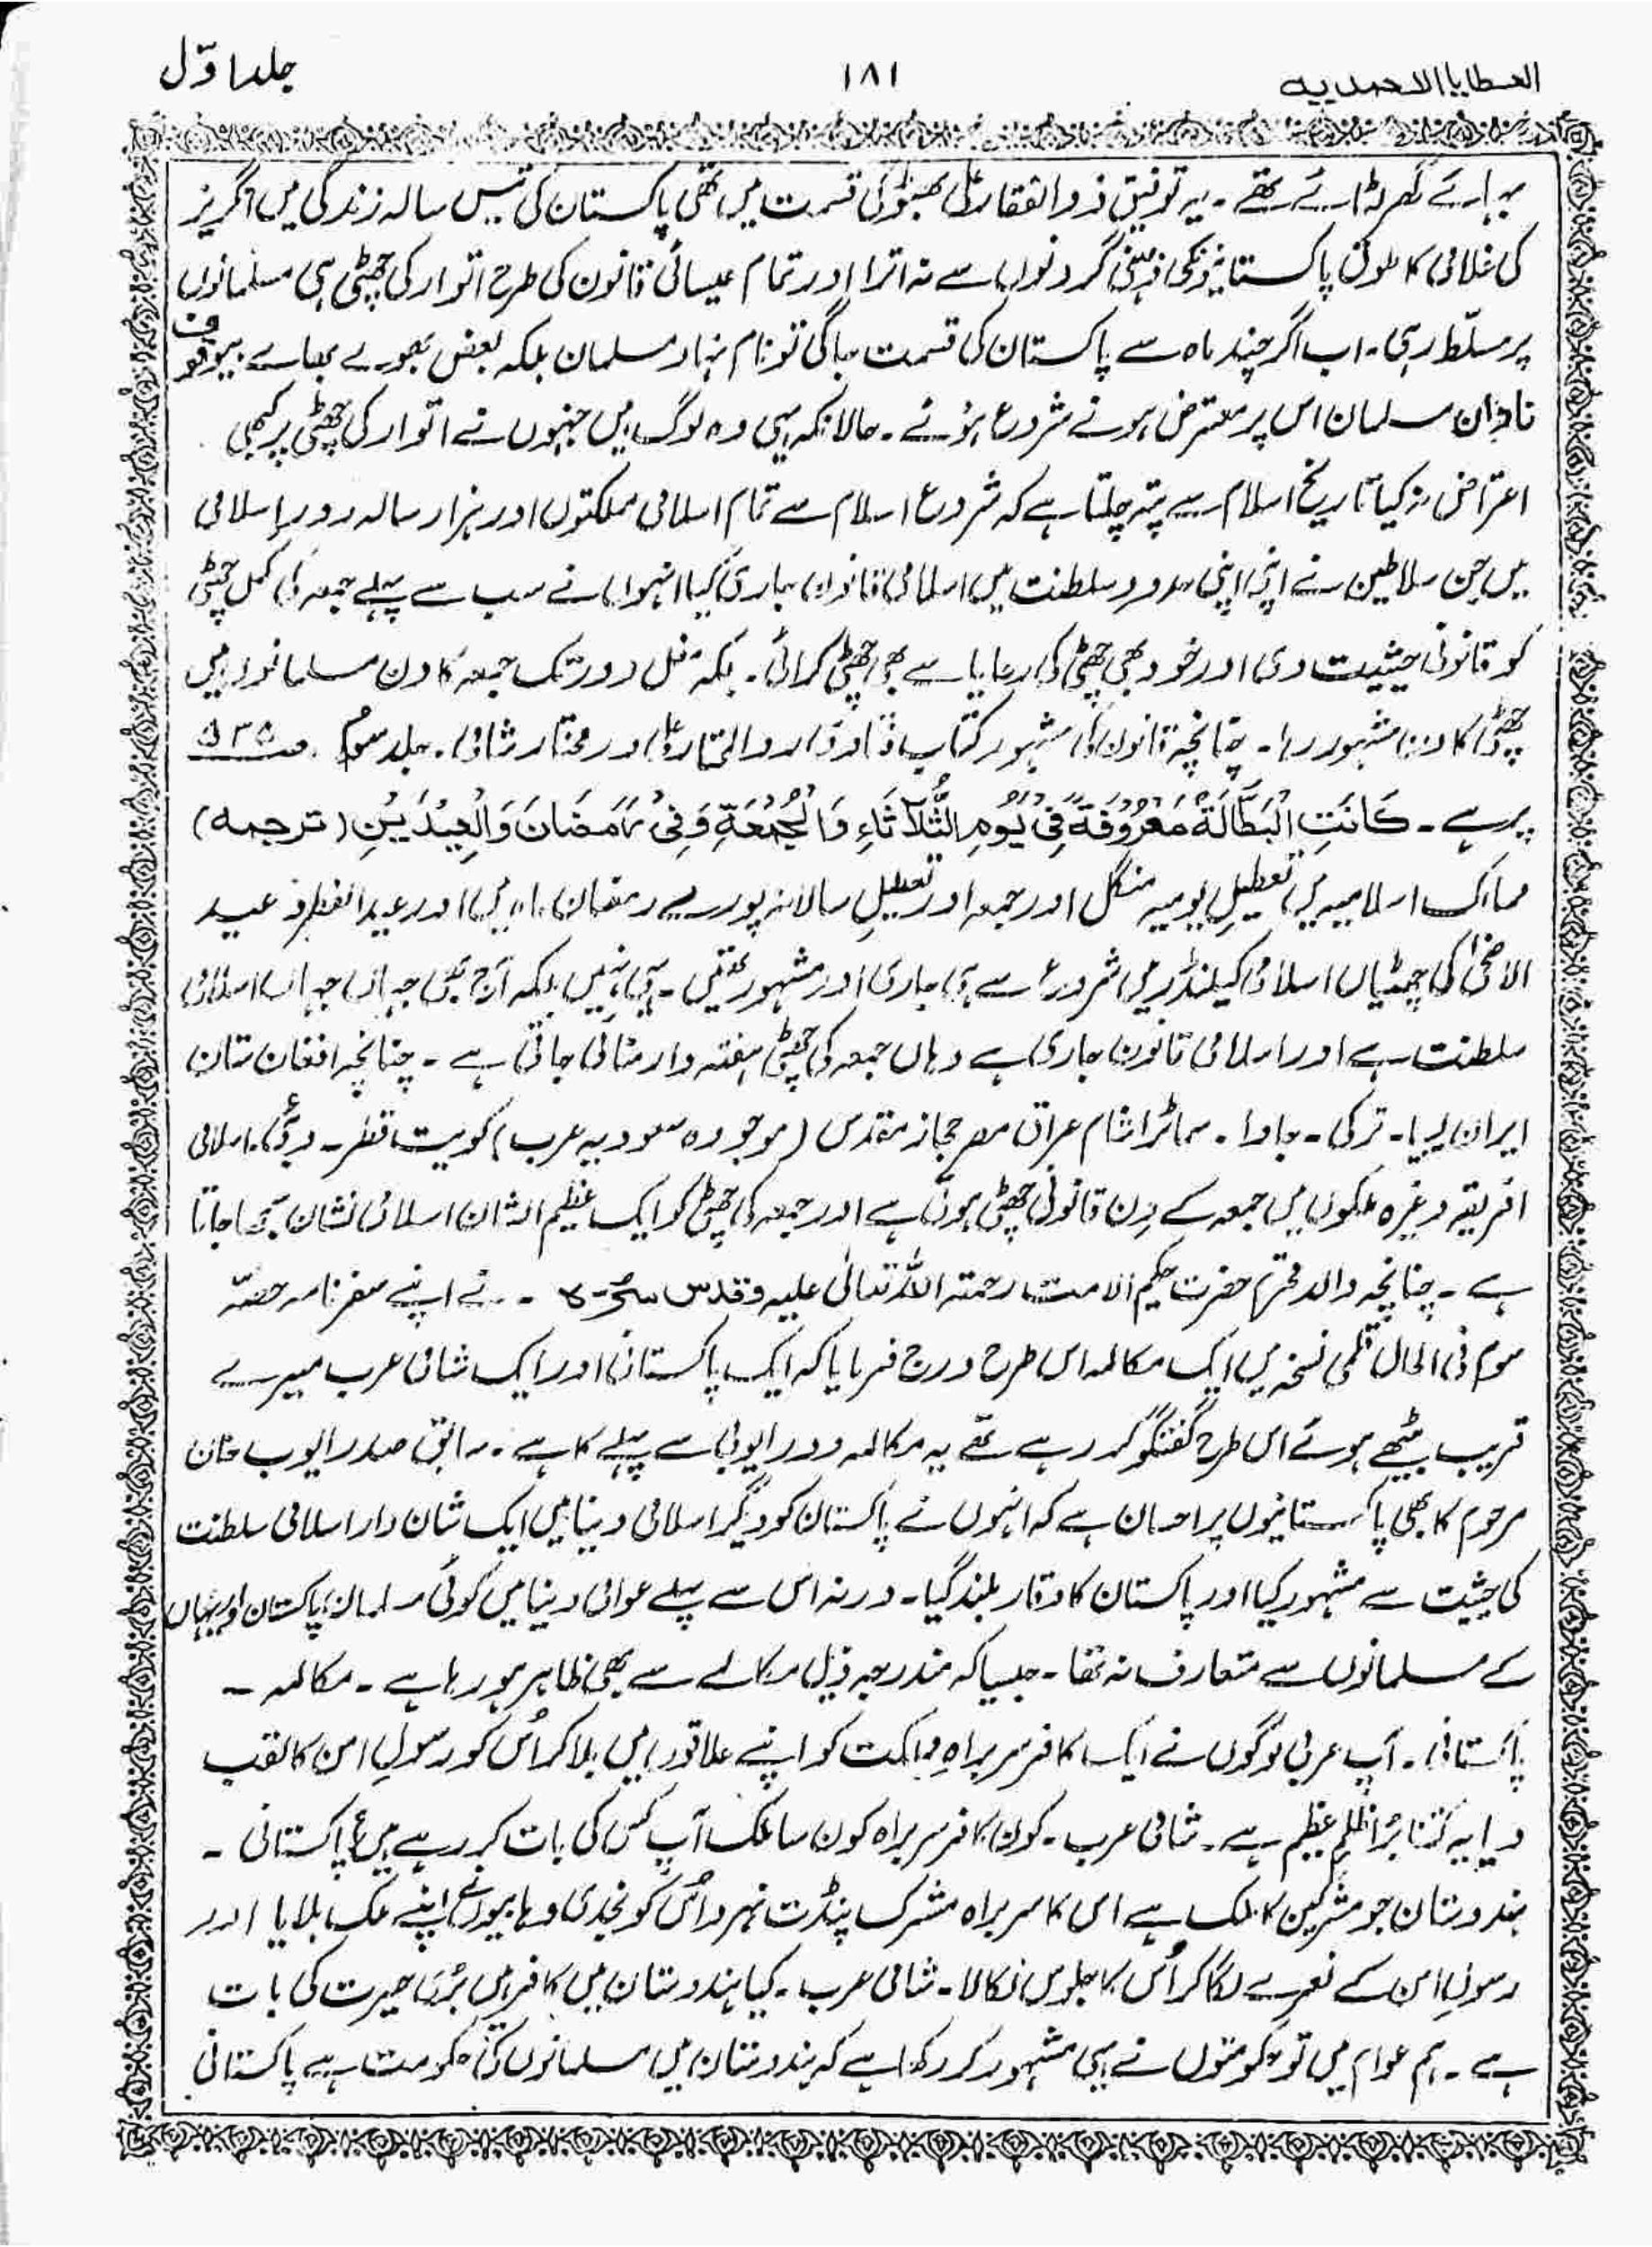 العطایا الاحمدیہ ۱۸۱ جلد اوّل
ہمارے گھر ڈارئے تھے۔ یہ توفیق ذوالفقار علی بھٹو کی قسمت میں تھی پاکستان کی تیس سالہ زندگی میں انگریز
کی غلامی کا طوق پاکستانیوں کی ذہنی گردنوں سے نہ اترا اور تمام عیسائی قانون کی طرح اتوار کی چھٹی ہی مسلمانوں
پر مسلّط رہی۔ اب اگر چند ماہ سے پاکستان کی قسمت جاگی تو نام نہاد مسلمان بلکہ بعض بھولے بھالے بیوقوف
نادان مسلمان اس پر معترض ہونے شروع ہوئے۔ حالانکہ یہی وہ لوگ ہیں جنہوں نے اتوار کی چھٹی پر کبھی
اعتراض نہ کیا تاریخ اسلام سے پتہ چلتا ہے کہ شروع اسلام سے تمام اسلامی مملکتوں اور ہزار سالہ دورِ اسلامی
میں جن سلاطین نے اپنی اپنی حدود سلطنت میں اسلامی قانون جاری کیا انہوں نے سب سے پہلے جمعہ کی مکمل چھٹی
کو قانونی حیثیت دی اور خود بھی چھٹی کی رعایا سے بھی چھٹی کرائی۔ بلکہ مغل دور تک جمعہ کا دن مسلمانوں میں
چھٹی کا دن مشہور رہا۔ چنانچہ قانون کی مشہور کتاب فتاویٰ ردالمحتار علی در مختار شامی۔ جلد سوم ص ۵۳۵
پر ہے۔ كَانَتِ الْبَطَّالَةُ مَعْرُوْفَةً فِیْ یَوْمِ الثُّلَاثَاءِ وَالْجُمُعَةِ وَفِیْ رَمَضَانَ وَالْعِیْدَیْنِ (ترجمہ)
ممالک اسلامیہ میں تعطیلِ یومیہ منگل اور جمعہ اور تعطیلِ سالانہ پورے رمضان میں اور عید الفطر و عید
الاضحیٰ کی چھٹیاں اسلامی کیلنڈر میں شروع سے ہی جاری اور مشہور تھیں۔ یہی نہیں بلکہ آج بھی جہاں جہاں اسلامی
سلطنت ہے اور اسلامی قانون جاری ہے وہاں جمعہ کی چھٹی ہفتہ وار منائی جاتی ہے۔ چنانچہ افغانستان
ایران لیبیا۔ ترکی۔ جاوا۔ سماٹرا شام عراق مصر حجاز مقدس (موجودہ سعودیہ عرب) کویت قطر۔ دوبئی۔ اسلامی
افریقہ وغیرہ ملکوں میں جمعہ کے دِن قانونی چھٹی ہوتی ہے اور جمعہ کی چھٹی کو ایک عظیم الشان اسلامی نشان سمجھا جاتا
ہے۔ چنانچہ والد محترم حضرت حکیم الامت رحمتہ اللہ تعالیٰ علیہ وقدس سرّہٗ۔ نے اپنے سفر نامہ حصّہ
سوم فی الحال قلمی نسخہ میں ایک مکالمہ اس طرح درج فرمایا کہ ایک پاکستانی اور ایک شامی عرب میرے
قریب بیٹھے ہوئے اس طرح گفتگو کر رہے تھے یہ مکالمہ دور ایوبی سے پہلے کا ہے۔ سابق صدر ایوب خان
مرحوم کا بھی پاکستانیوں پر احسان ہے کہ انہوں نے پاکستان کو دیگر اسلامی دنیا میں ایک شان دار اسلامی سلطنت
کی حیثیت سے مشہور کیا اور پاکستان کا وقار بلند کیا۔ ورنہ اس سے پہلے عوامی دنیا میں کوئی مسلمان پاکستان اور یہاں
کے مسلمانوں سے متعارف نہ تھا۔ جیسا کہ مندرجہ ذیل مکالمے سے بھی ظاہر ہو رہا ہے۔ مکالمہ۔
پاکستانی۔ آپ عربی لوگوں نے ایک کافر سربراہِ مملکت کو اپنے علاقوں میں بلا کر اُس کو رسولِ امن کا لقب
دیا یہ کتنا بڑا ظلمِ عظیم ہے۔ شامی عرب۔ کون کافر سربراہ کون سا ملک آپ کس کی بات کر رہے ہیں؟ پاکستانی۔
ہندوستان جو مشرکین کا ملک ہے اس کا سربراہ مشرک پنڈت نہرو اُس کو نجدی وہابیوں نے اپنے ملک بلایا اور
رسولِ امن کے نعرے لگا کر اُس کا جلوس نکالا۔ شامی عرب۔ کیا ہندوستان میں کافر ہیں بڑی حیرت کی بات
ہے۔ ہم عوام میں تو حکومتوں نے یہی مشہور کر رکھا ہے کہ ہندوستان میں مسلمانوں کی حکومت ہے پاکستانی